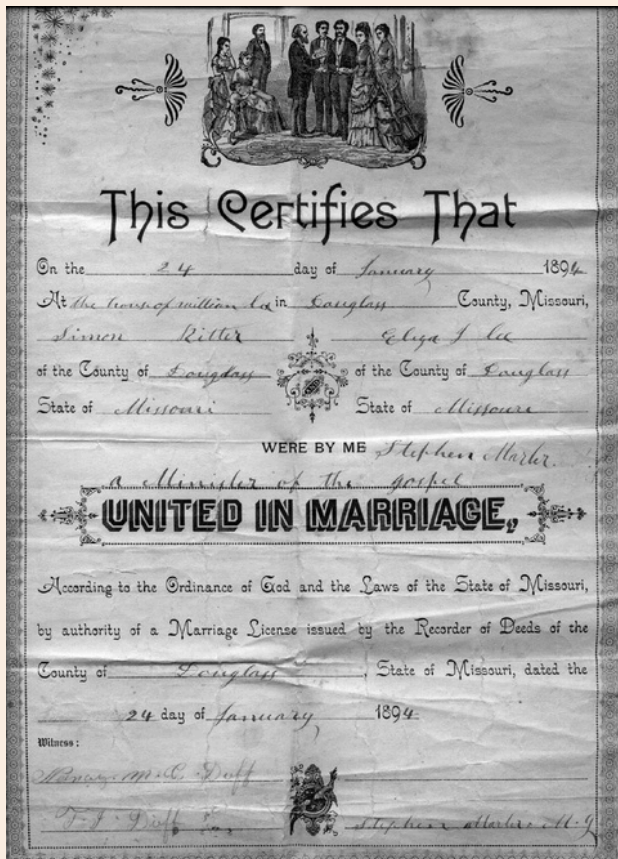 This Certifies That
On the 24 day of January 1894
At the house of william lee in Douglass County, Missouri,
Simon Ritter Eliza J lee
of the County of Douglass of the County of Douglass
State of Missouri State of Missouri
WERE BY ME Stephen Marler.
a Minister of the gospel
UNITED IN MARRIAGE,
According to the Ordinance of God and the Laws of the State of Missouri,
by authority of a Marriage License issued by the Recorder of Deeds of the
County of Douglass, State of Missouri, dated the
24 day of January 1894
Witness:
Duff
T. J. Duff Stephen Marler M. g